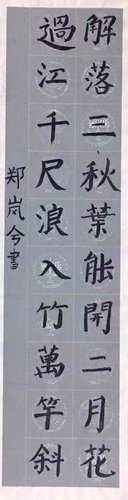 解落三秋葉能開二月花
過江千尺浪入竹萬竿斜
郑岚兮書